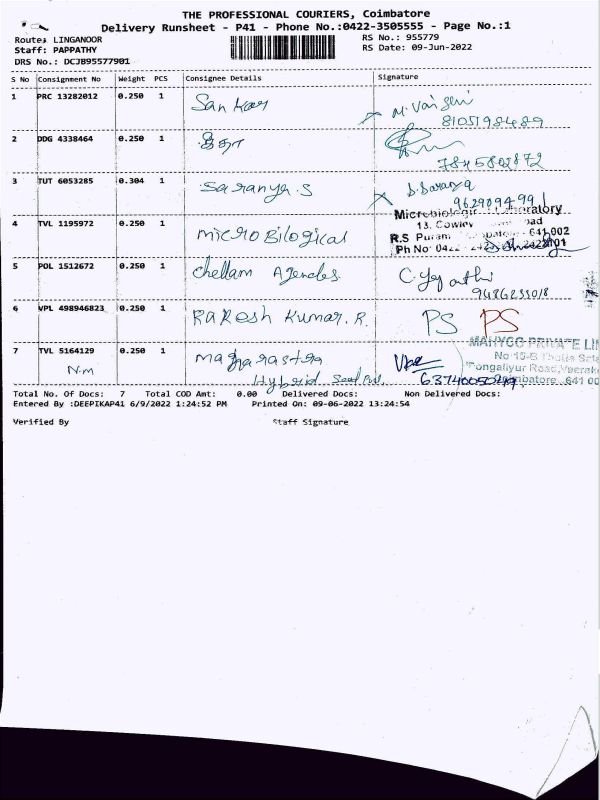 THE PROFESSIONAL COURIERS, Coimbatore
Delivery Runsheet - P41 - Phone No.:0422-3505555 - Page No.:1
Route: LINGANOOR RS No.: 955779
Staff: PAPPATHY RS Date: 09-Jun-2022
DRS No.: DCJB95577901
S No Consignment No Weight PCS Consignee Details Signature
1 PRC 13282012 0.250 1 Sankar
8105198489
2 DDG 4338464 0.250 1 கீதா
7845802872
3 TUT 6053285 0.304 1 Saranya.S S.Saranya
9629094991
Microbiological Laboratory
4 TVL 1195972 0.250 1 microbilogical 13. Cowley
R.S Puram 641 002
Ph No 0422
5 POL 1512672 0.250 1 Chellam Agencies
9486255018
6 VPL 498946823 0.250 1 Rakesh Kumar. R. PS PS
MAHYCO PRIVATE LI
7 TVL 5164129 0.250 1 Magharastra No 15-B
Nm Hybrid Seed Pvt. Tongaliyur Road,
Total No. Of Docs: 7 Total COD Amt: 0.00 Delivered Docs: Non Delivered Docs:
Entered By :DEEPIKAP41 6/9/2022 1:24:52 PM Printed On: 09-06-2022 13:24:54
Verified By Staff Signature